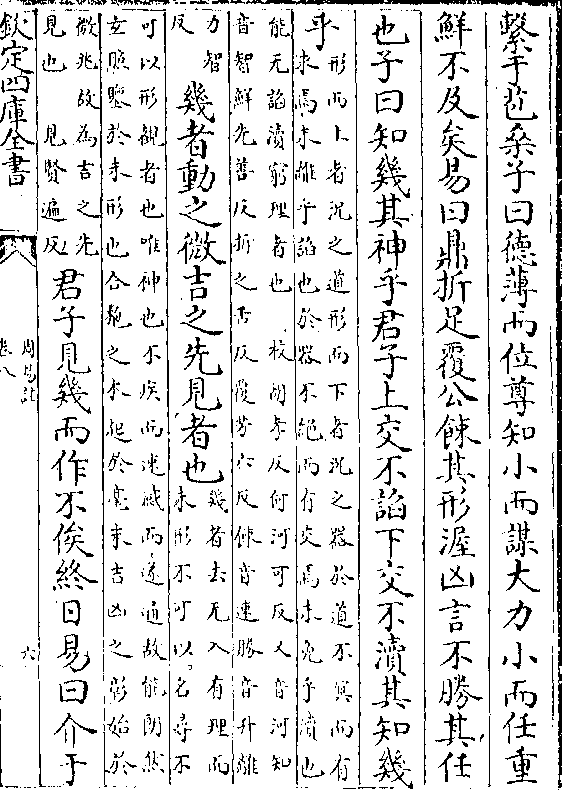 繫于苞桑子曰德薄而位尊知小而謀大力小而任重
鮮不及矣易曰鼎折足覆公餗其形渥凶言不勝其任
也子曰知幾其神乎君子上交不諂下交不瀆其知幾
乎
形而上者況之道形而下者況之器於道不冥而有
求焉未離乎諂也於器不絶而有交焉未免乎瀆也
能无諂瀆窮理者也 校胡孝反何河可反又音河知
音智鮮先善反折之舌反覆芳六反餗音速勝音升離
力智
反
幾者動之微吉之先見者也
幾者去无入有理而
未形不可以名尋不
可以形覩者也唯神也不疾而速感而遂通故能朗然
玄照鑒於未形也合抱之木起於毫末吉凶之彰始於
微兆故為吉之先
見也 見賢遍反
君子見幾而作不俟終日易曰介于
欽定四庫全書
周易註
卷八
六